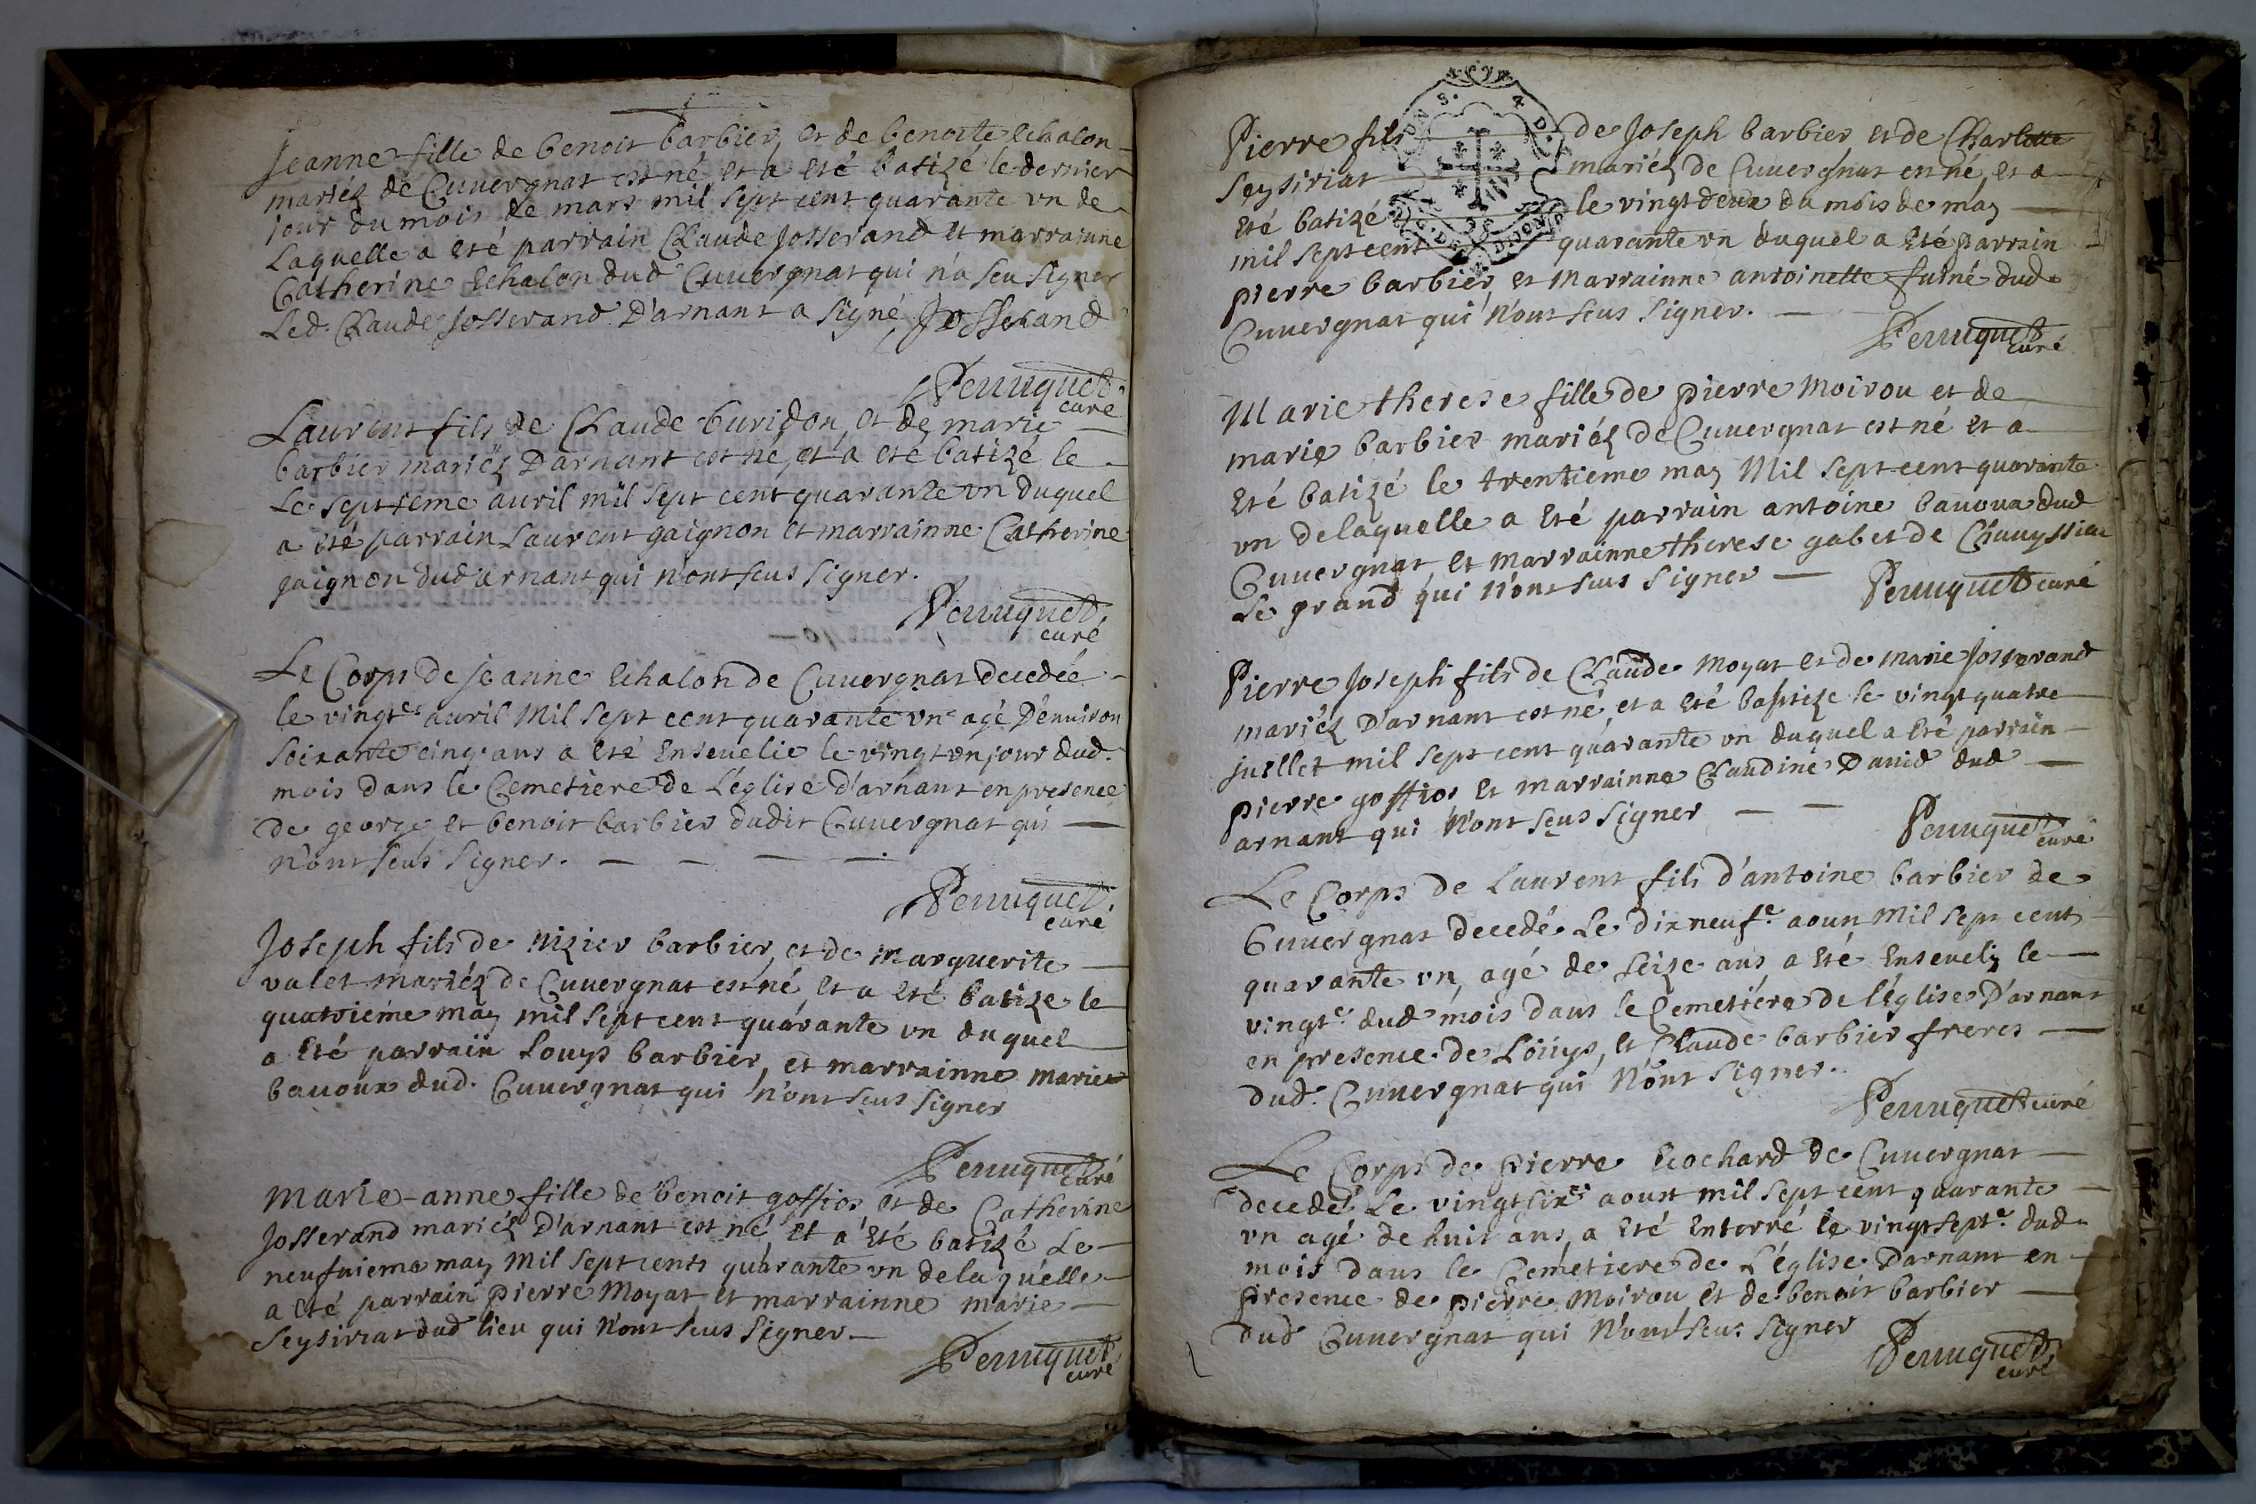 Jeanne fille de benoit barbier, et de benoite Echalon
mariéz de Cuvergnat est né et a eté batizé le dernier
jour du mois de mars mil sept cent quarante un de
Laquelle a eté parrain Claude Josserand et marrainne
Catherine Echalon dud Cuvergnat qui n'a seu signer
Led. Claude Josserand D'arnant a signé Josserand
Perruquet
curé
Laurent fils de Claude buridon, et de marie
barbier mariéz D'arnant est né, et a eté batizé le
Le septieme auril mil sept cent quarante un duquel
a eté parrain Laurent gaignon et marrainne Catherine
gaignon dud arnant qui n'ont seus signer.
Perruquet
curé
Le Corps de jeanne Echalon de Cuvergnat decedée
le vingt.e auril Mil sept cent quarante un agé D'enuiron
soixante cinq ans a eté Enseuelie le vingt un jour dud.
mois dans le Cemetiere de L'église d'arnant en presence
de george et benoit barbier dudit Cuvergnat qui
n'ont seus signer.
Perruquet
curé
Joseph fils de nizier barbier, et de marguerite
valet mariéz de Cuvergnat est né, et a eté batize le
quatriéme may mil sept cent quarante un duquel
a eté parrain Louys barbier, et marrainne marie
bauoux dud. Cuvergnat qui n'ont seus signer
Perruquet
curé
Marie-anne fille de benoit goffios et de Catherine
Josserand mariéz D'arnant est né, et a eté batizé Le
neufuieme may Mil sept cents quarante un de laquelle
a eté parrain pierre Moyat et marrainne marie
Seysiriat dud lieu qui n'ont seus signer.
Perruquet
curé
Pierre fils de Joseph barbier et de Charlotte
Seysiriat mariéz de Cuvergnat est né, et a
eté batizé le vingt deux du mois de may
mil sept cent quarante un duquel a eté parrain
pierre barbier, et Marrainne antoinette fuiné dud
Cuvergnat qui n'ont seus signer.
Perruquet
curé
Marie therese fille de pierre Moirou et de
marie barbier mariéz de Cuvergnat est né et a
eté batizé le trentieme may Mil sept cent quarante
un de laquelle a eté parrain antoine bauoux dud
Cuvergnat et marrainne therese gabet de Chauyssiat
Le grand qui n'ont seus signer
Perruquet curé
Pierre Joseph fils de Claude Moyat et de marie Josserand
mariéz D'arnant est né, et a eté baptize le vingt quatre
juillet mil sept cent quarante un duquel a eté parrain
pierre goffios et marrainne Claudine David dud
arnant qui n'ont seus signer
Perruquet
curé
Le Corps de Laurent fils d'antoine barbier de
Cuvergnat decedé Le dix neuf.e aoust Mil sept cent
quarante un, agé de seize ans a eté Enseuely le
vingt.e dud mois dans le Cemetiére de l'église D'arnant
en presence de Loüys, et Claude barbier freres
dud. Cuvergnat qui n'ont signer.
Perruquet curé
Le Corps de pierre Ecochard de Cuvergnat
decedé Le vingt six.e aoust mil sept cent quarante
un agé de huit ans, a eté Enterré le vingt sept.e dud
mois dans le Cemetiere de L'église D'arnant en
presence de pierre Moirou, et de benoit barbier
dud Cuvergnat qui n'ont seus signer
Perruquet
curé